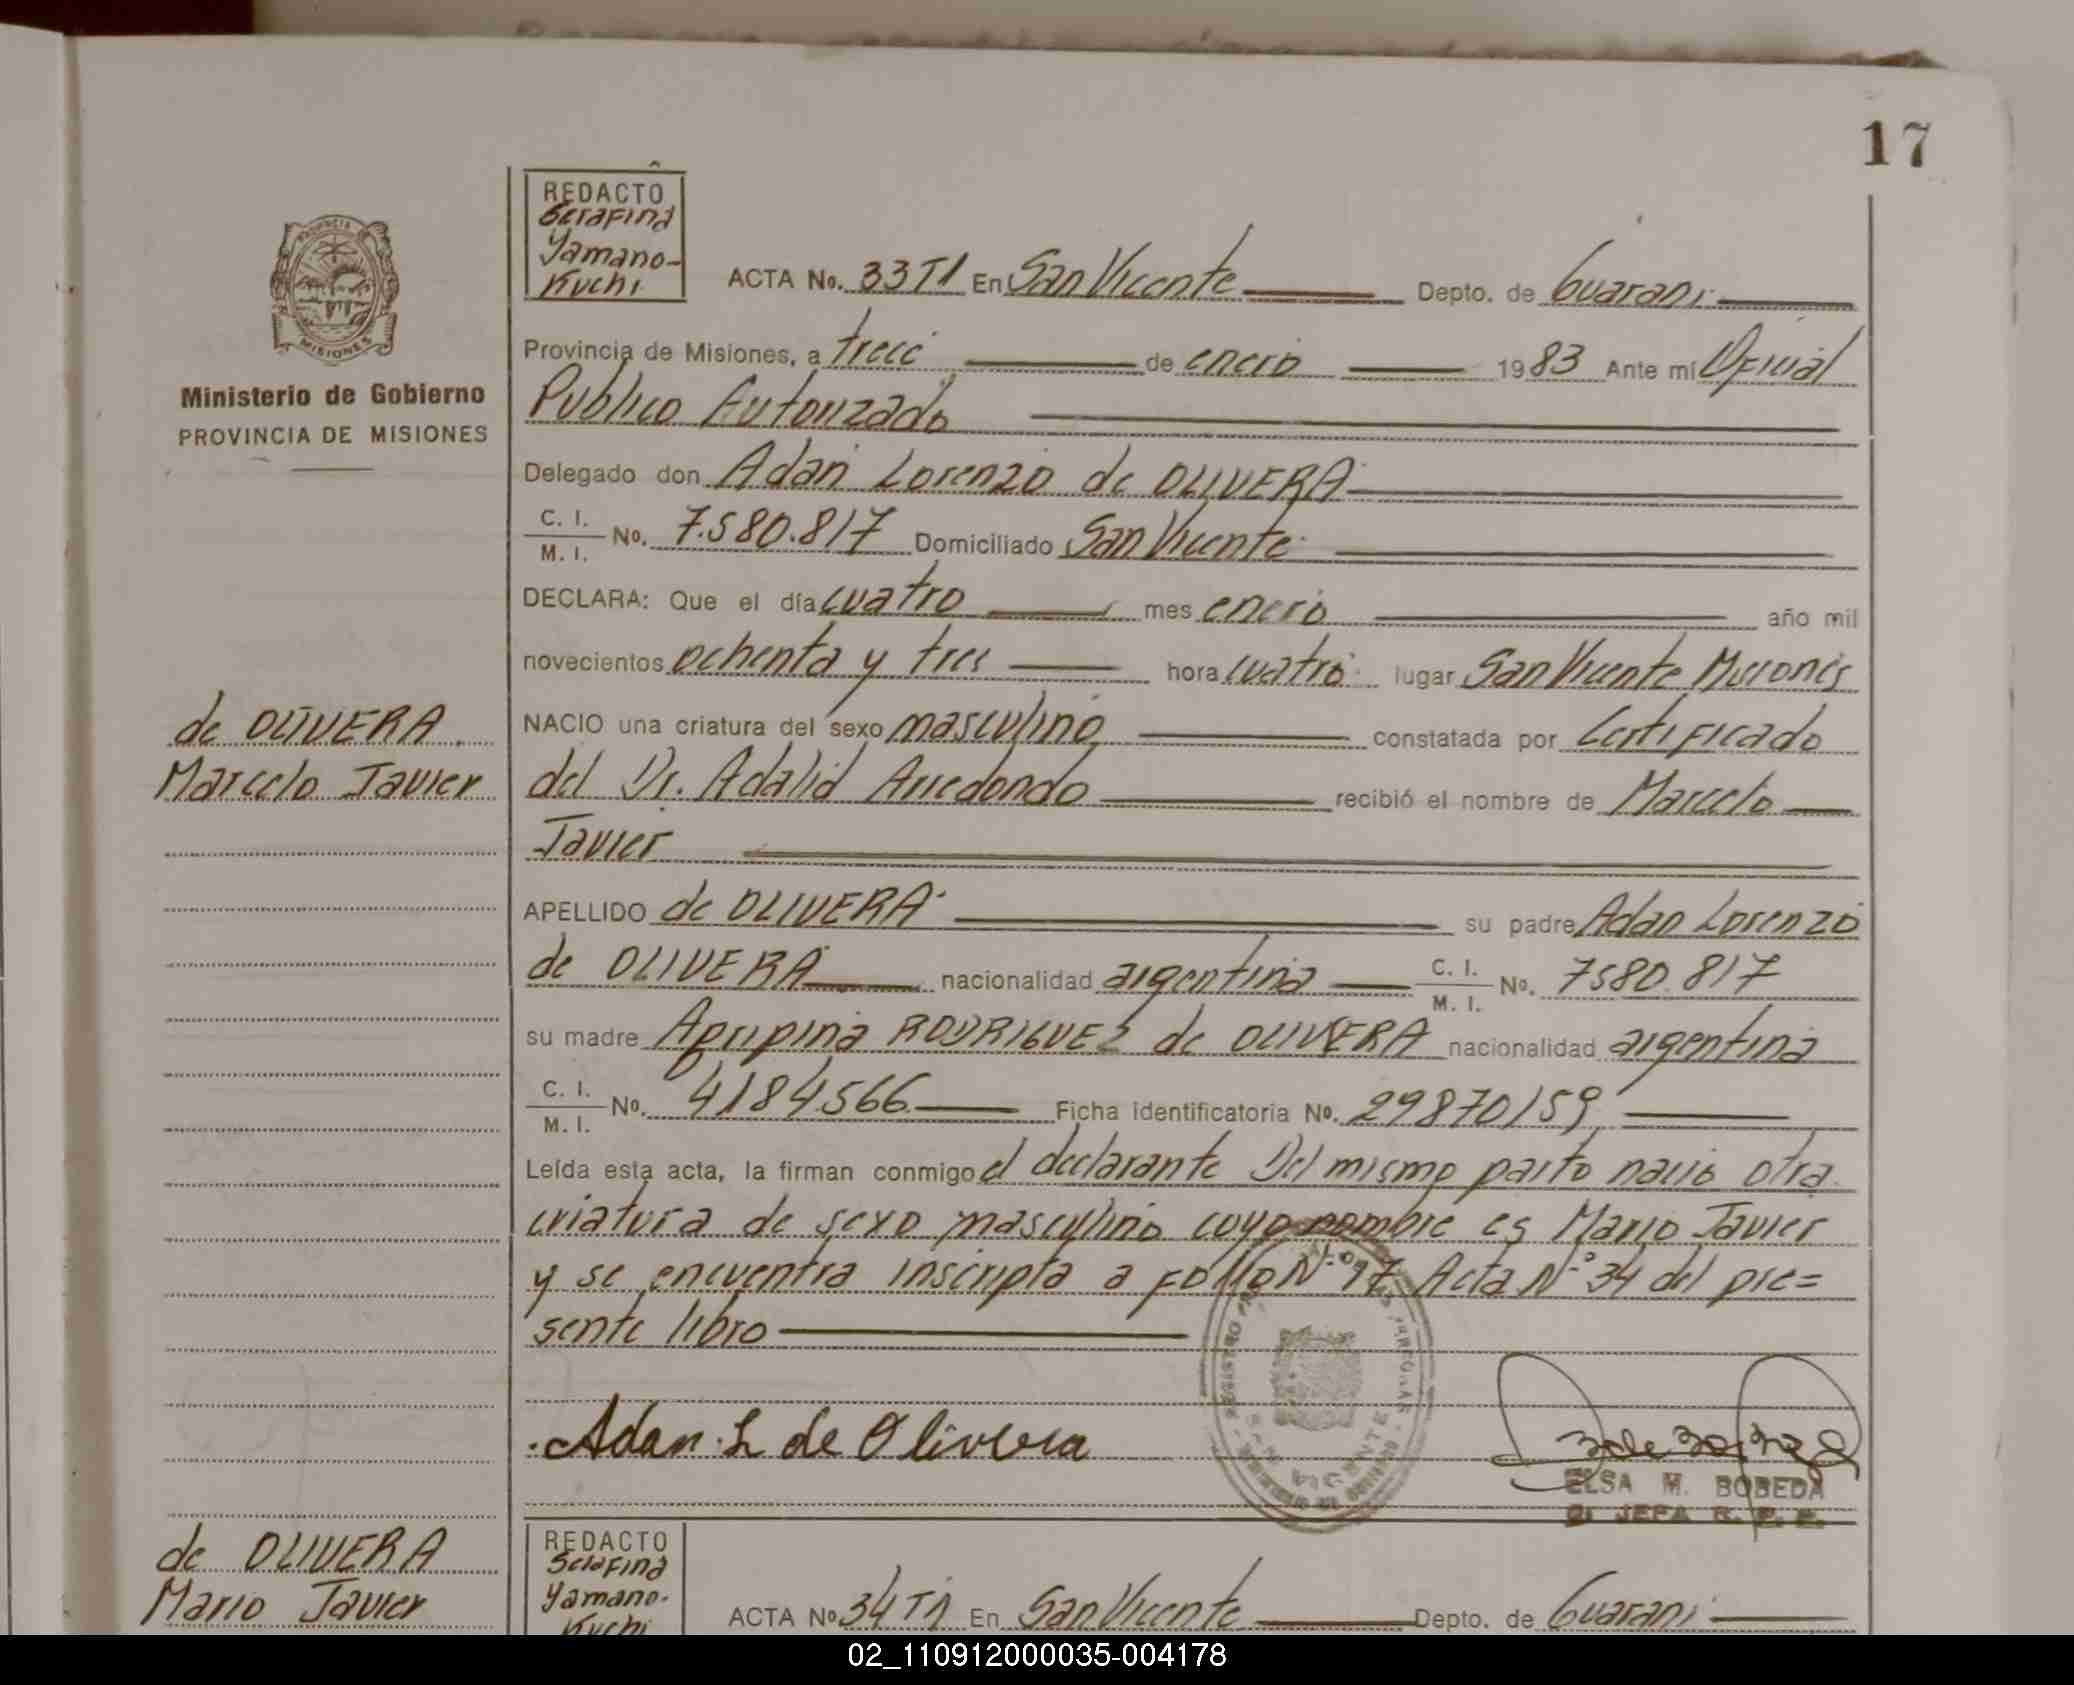 17
REDACTO
Serafina
Yamano-
Kuchi
ACTA No. 33 T1 En San Vicente Depto. de Guarani
Provincia de Misiones, a trece de enero 1983 Ante mí Oficial
Publico Autorizado
Ministerio de Gobierno
PROVINCIA DE MISIONES
Delegado don Adan Lorenzo de OLIVERA
C. I. / M. I. No. 7.580.817 Domiciliado San Vicente
DECLARA: Que el día cuatro mes enero año mil
novecientos ochenta y tres hora cuatro lugar San Vicente Misiones
de OLIVERA
Marcelo Javier
NACIO una criatura del sexo masculino constatada por Certificado
del Dr. Adalid Arredondo recibió el nombre de Marcelo
Javier
APELLIDO de OLIVERA su padre Adan Lorenzo
de OLIVERA nacionalidad argentina C. I. / M. I. No. 7580.817
su madre Agripina RODRIGUEZ de OLIVERA nacionalidad argentina
C. I. / M. I. No. 4184566 Ficha identificatoria No. 29870/59
Leída esta acta, la firman conmigo el declarante Del mismo parto nacio otra
criatura de sexo masculino cuyo nombre es Mario Javier
y se encuentra inscripta a Folio N° 17 Acta N° 34 del pre=
sente libro
Adan L de Olivera
ELSA M. BOBEDA
JEFA R. P. P.
de OLIVERA
Mario Javier
REDACTO
Serafina
Yamano-
Kuchi
ACTA No 34 T1 En San Vicente Depto. de Guarani
02_110912000035-004178